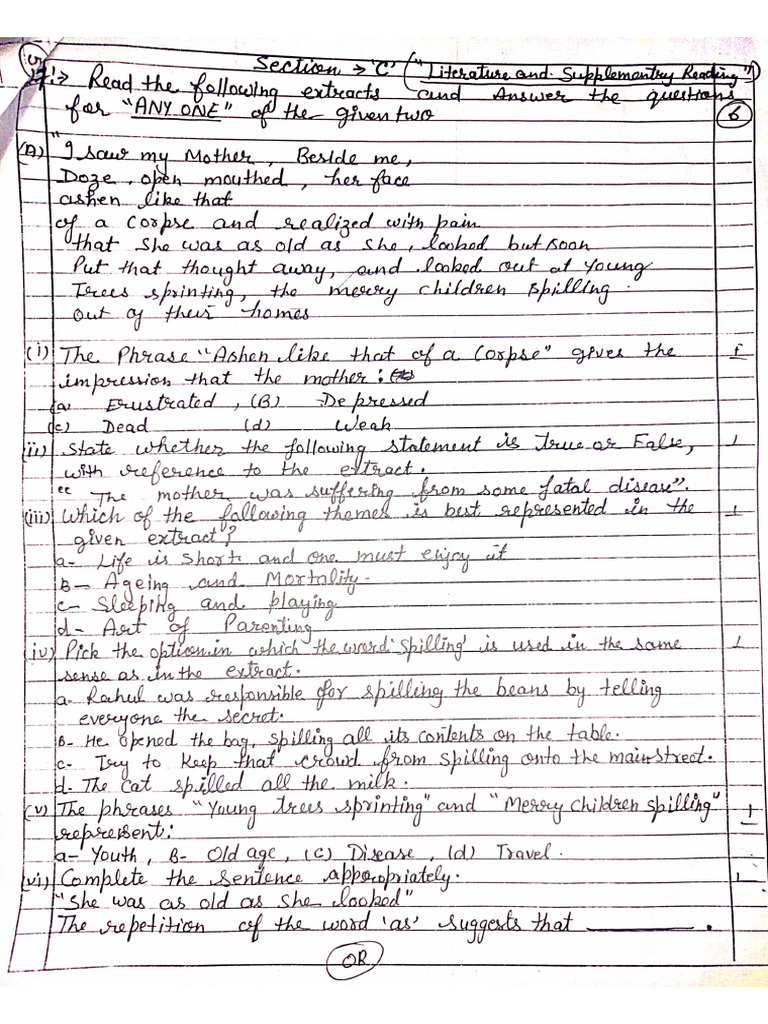 Section → 'C' ("Literature and Supplementry Reading")
Read the following extracts and Answer the questions
for "ANY ONE" of the given two
6
(A) "I saw my Mother, Beside me,
Doze, open mouthed, her face
ashen like that
of a corpse and realized with pain
that she was as old as she, looked but soon
Put that thought away, and looked out at Young
Trees sprinting, the merry children spilling
out of their homes
(i) The Phrase "Ashen like that of a Corpse" gives the 1
impression that the mother:
(a Frustrated, (B) Depressed
(c) Dead (d) Weak
(ii) State whether the following statement is True or False, 1
with reference to the extract.
"The mother was suffering from some fatal disease".
(iii) Which of the following themes is best represented in the 1
given extract?
a- Life is short and one must enjoy it
B- Ageing and Mortality.
c- Sleeping and playing
d- Art of Parenting
(iv) Pick the option in which the word 'spilling' is used in the same 1
sense as in the extract.
a. Rahul was responsible for spilling the beans by telling
everyone the secret.
B- He opened the bag, spilling all its contents on the table.
c- Try to keep that crowd from spilling onto the mainstreet.
d- The cat spilled all the milk.
(v) The phrases "Young trees sprinting" and "Merry children spilling" 1
represent:
a- Youth, B- Old age, (c) Disease, (d) Travel.
(vi) Complete the sentence appropriately. 1
"She was as old as she looked"
The repetition of the word 'as' suggests that ________.
OR